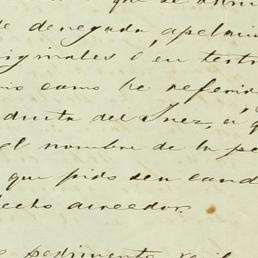 que se
de denegada apelaci
riginales ó en testi
mo como he referid
ducta del Juez, ó q
el nombre de la pe
que pido sea cond
echo acreedor.
pedimento